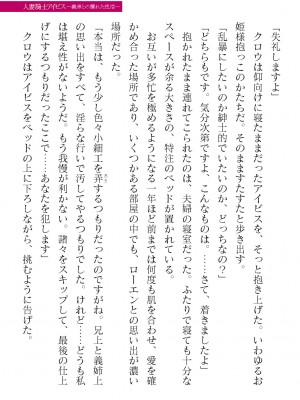 人妻騎士アイビス～義弟との爛れた性活～
「失礼しますよ」
　クロウは仰向けに寝たままだったアイビスを、そっと抱き上げた。いわゆるお
姫様抱っこのかたちだ。そのまますたすたと歩き出す。
「乱暴にしたいのか紳士的でいたいのか、どっちなの？」
「どちらもです。気分次第ですよ、こんなものは。……さて、着きましたよ」
　抱かれたまま連れてこられたのは、夫婦の寝室だった。ふたりで寝ても十分な
スペースが余る大きさの、特注のベッドが置かれている。
　お互いが多忙を極めるようになる一年ほど前までは何度も肌を合わせ、愛を確
かめ合った場所であり、いくつかある部屋の中でも、ローエンとの思い出が濃い
場所だった。
「本当は、もう少し色々小細工を弄するつもりだったのですがね。兄上と義姉上
の思い出をすべて、淫らな行いで汚してやるつもりでした。けれど……どうも私
は堪え性がないようだ。もう我慢が利かない。諸々をスキップして、最後の仕上
げにするつもりだったここで……あなたを犯します」
　クロウはアイビスをベッドの上に下ろしながら、挑むように告げた。